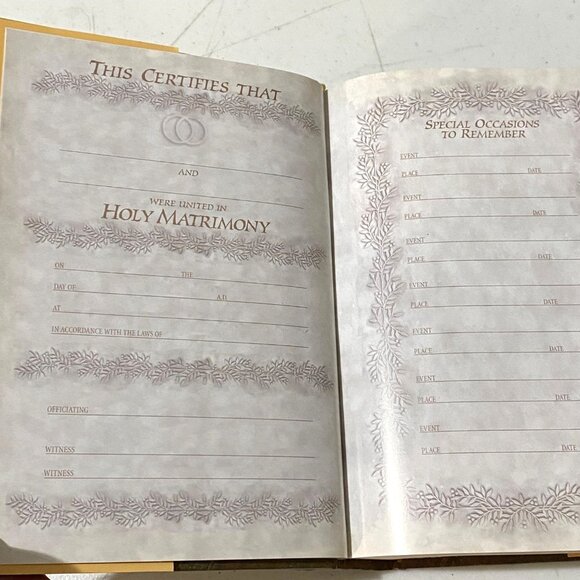 THIS CERTIFIES THAT
AND
WERE UNITED IN
HOLY MATRIMONY
ON THE
DAY OF A.D.
AT
IN ACCORDANCE WITH THE LAWS OF
OFFICIATING
WITNESS
WITNESS
SPECIAL OCCASIONS
TO REMEMBER
EVENT
PLACE DATE
EVENT
PLACE DATE
EVENT
PLACE DATE
EVENT
PLACE DATE
EVENT
PLACE DATE
EVENT
PLACE DATE
EVENT
PLACE DATE